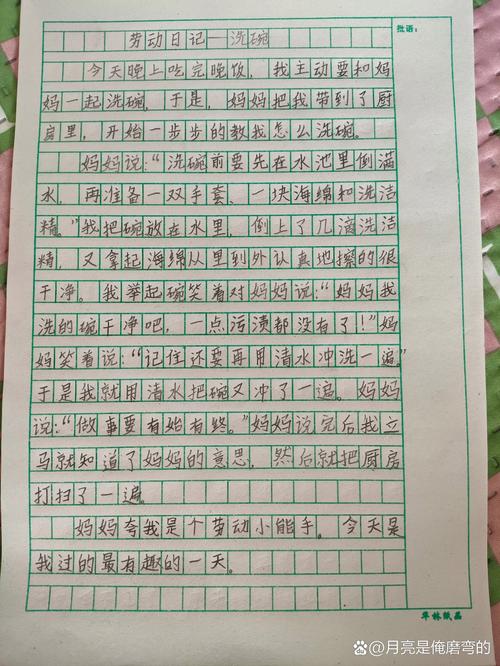 批语:
劳动日记——洗碗
今天晚上吃完晚饭，我主动要和妈
妈一起洗碗，于是，妈妈把我带到了厨
房里，开始一步步的教我怎么洗碗。
妈妈说：“洗碗前要先在水池里倒满
水，再准备一双手套、一块海绵和洗洁
精。”我把碗放在水里，倒上了几滴洗洁
精，又拿起海绵从里到外认真地擦的很
干净。我举起碗笑着对妈妈说：“妈妈我
洗的碗干净吧，一点污渍都没有了！”妈
妈笑着说：“记住还要再用清水冲洗一遍。”
于是我就用清水把碗又冲了一遍。妈妈
说：“做事要有始有终。”妈妈说完后我立
马就知道了妈妈的意思，然后就把厨房
打扫了一遍。
妈妈夸我是个劳动小能手。今天是
我过的最有趣的一天。
华林纸品
@月亮是俺磨弯的